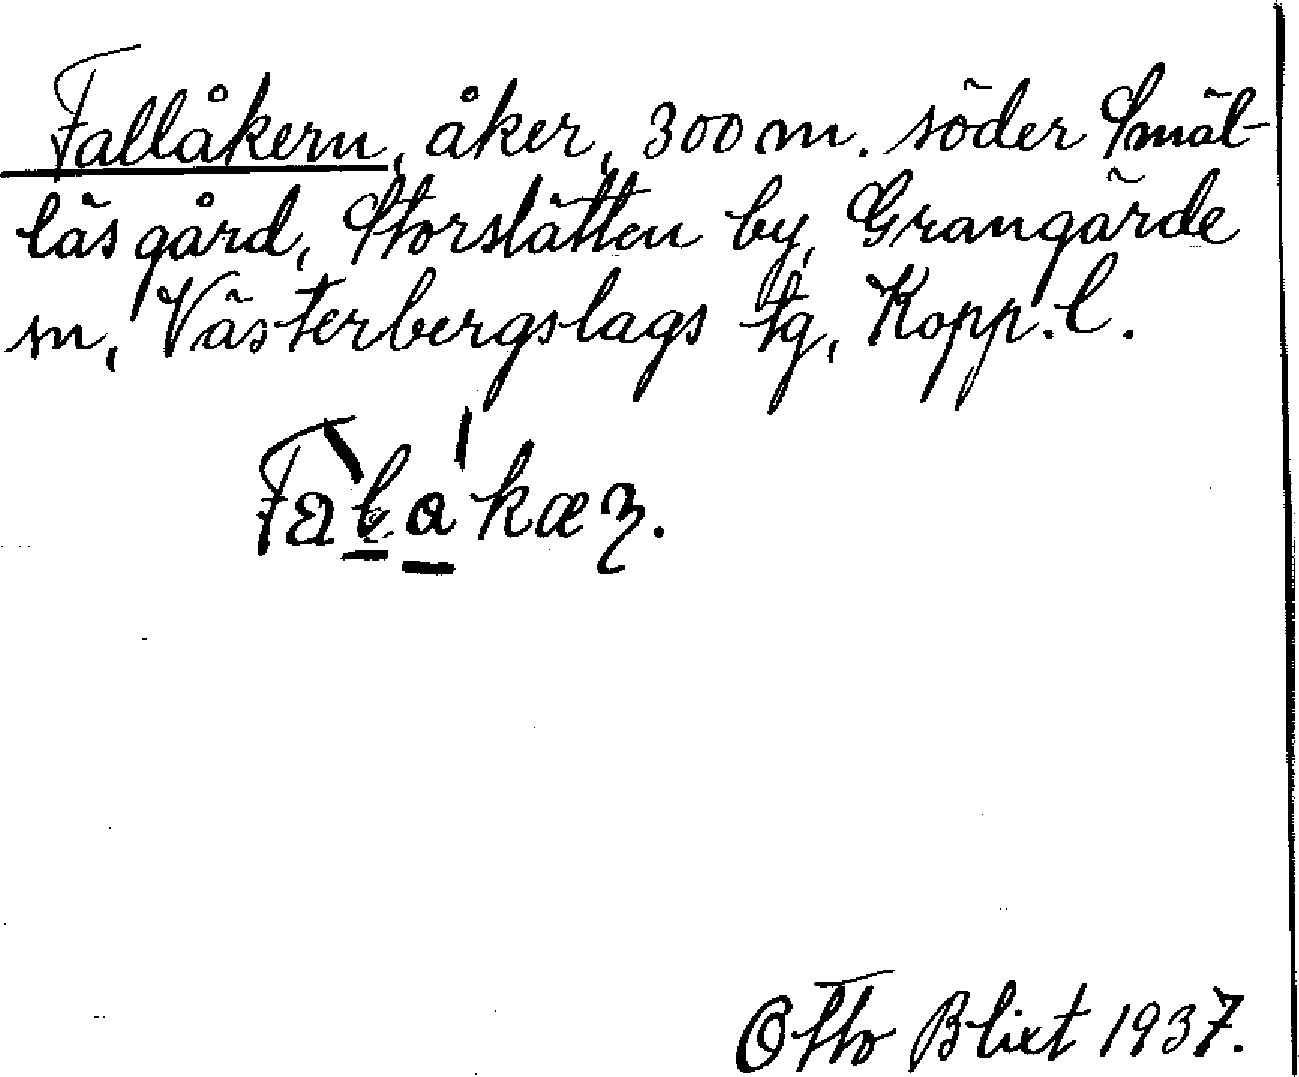 Fallåkern, åker, 300 m. söder Smäl-
läsgård, Storslätten by, Grangärde
sn, Västerbergslags tg, Kopp. l.
Otto Blixt 1937.